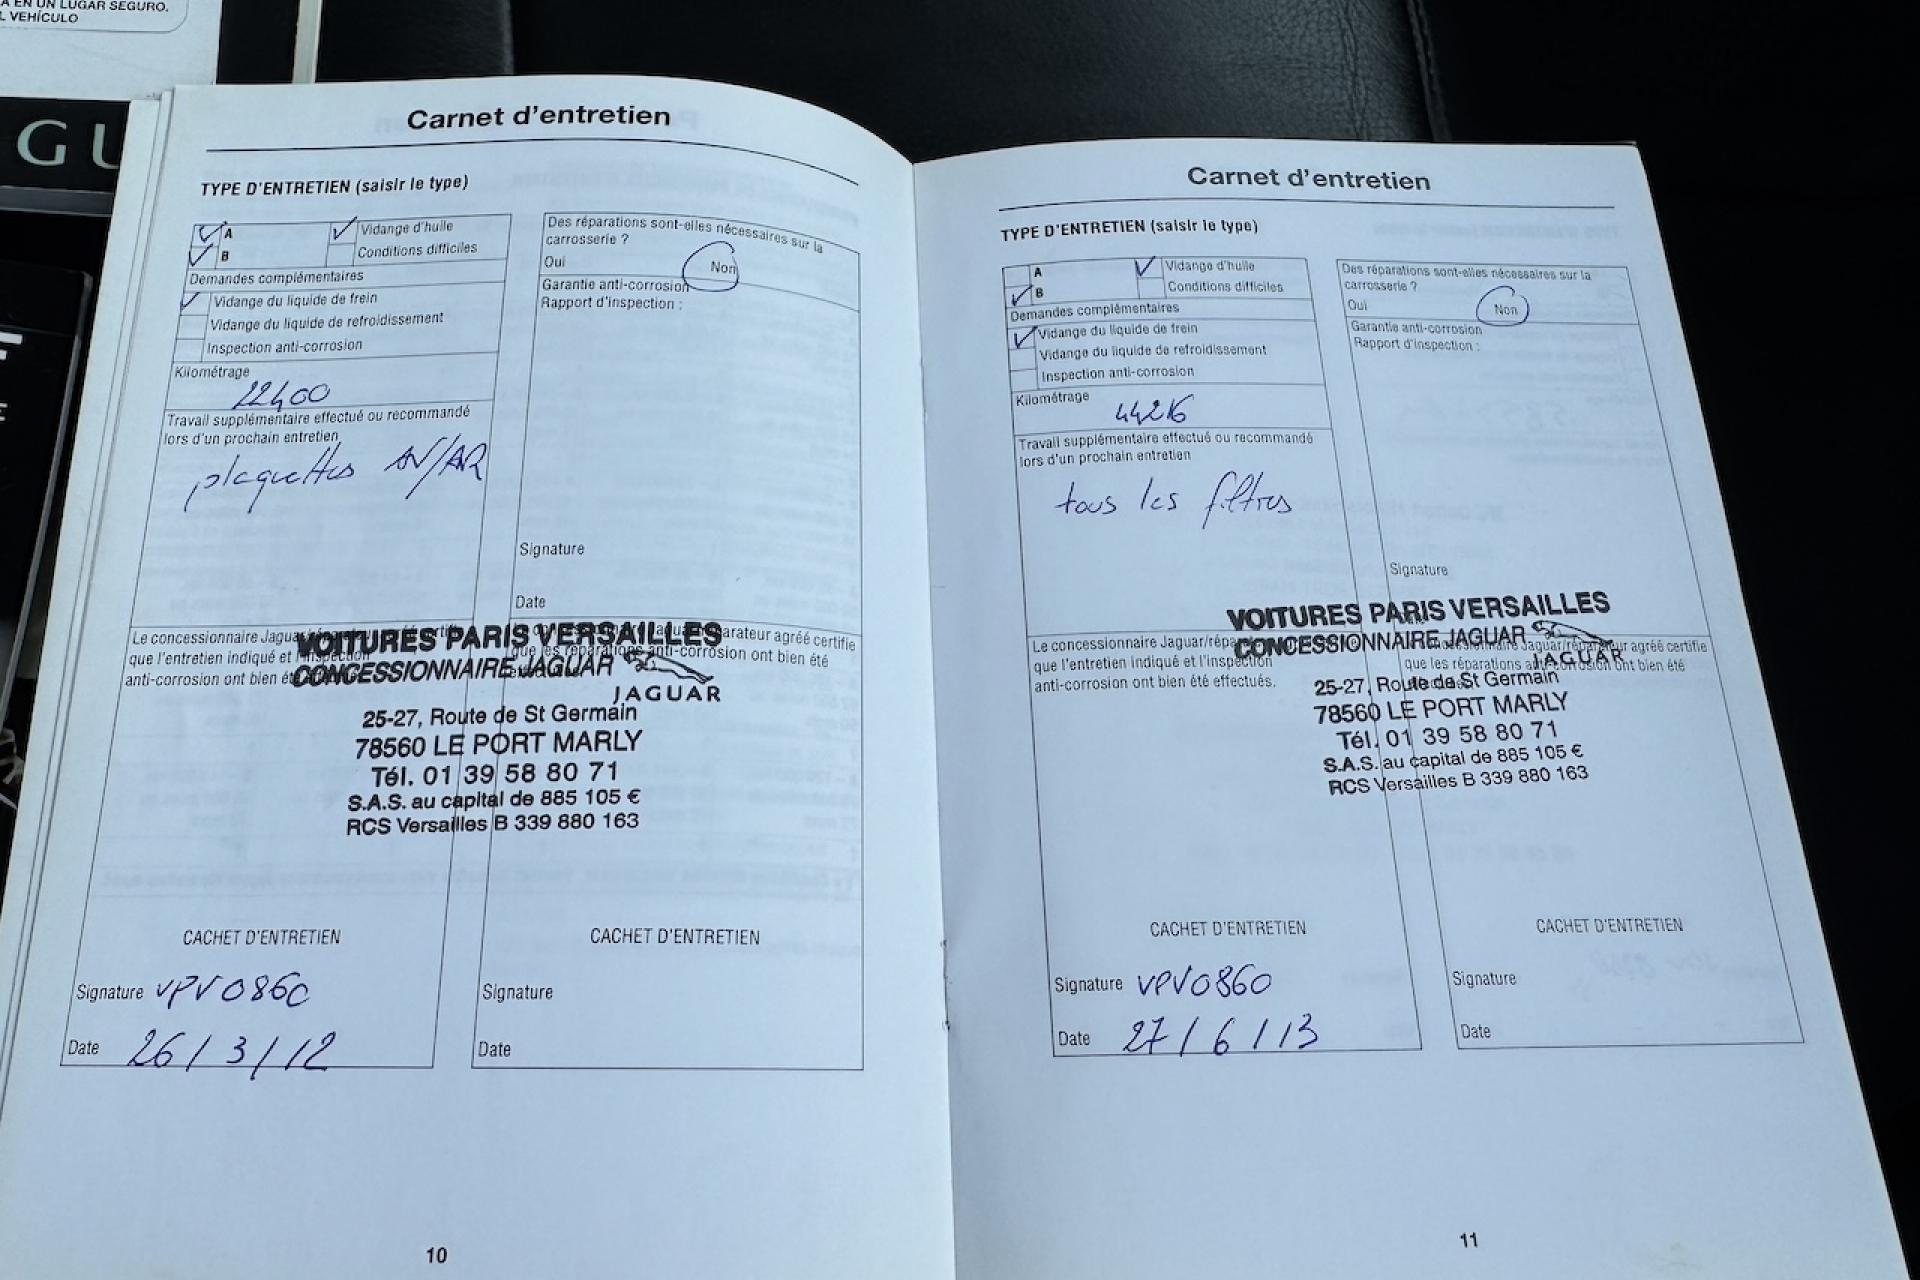 A EN UN LUGAR SEGURO.
L VEHÍCULO
GU
Carnet d'entretien
TYPE D'ENTRETIEN (saisir le type)
A
Vidange d'huile
B
Conditions difficiles
Demandes complémentaires
Vidange du liquide de frein
Vidange du liquide de refroidissement
Inspection anti-corrosion
Kilométrage
22400
Travail supplémentaire effectué ou recommandé
lors d'un prochain entretien
plaquettes AV/AR
Des réparations sont-elles nécessaires sur la
carrosserie ?
Oui
Non
Garantie anti-corrosion
Rapport d'inspection :
Signature
Date
Le concessionnaire Jaguar/réparateur agréé certifie
que l'entretien indiqué et l'inspection
anti-corrosion ont bien été effectués.
réparateur agréé certifie
que les réparations anti-corrosion ont bien été
VOITURES PARIS VERSAILLES
CONCESSIONNAIRE JAGUAR
JAGUAR
25-27, Route de St Germain
78560 LE PORT MARLY
Tél. 01 39 58 80 71
S.A.S. au capital de 885 105 €
RCS Versailles B 339 880 163
CACHET D'ENTRETIEN
Signature VPV0860
Date 26/3/12
CACHET D'ENTRETIEN
Signature
Date
10
Carnet d'entretien
TYPE D'ENTRETIEN (saisir le type)
A
Vidange d'huile
B
Conditions difficiles
Demandes complémentaires
Vidange du liquide de frein
Vidange du liquide de refroidissement
Inspection anti-corrosion
Kilométrage
44216
Travail supplémentaire effectué ou recommandé
lors d'un prochain entretien
tous les filtres
Des réparations sont-elles nécessaires sur la
carrosserie ?
Oui
Non
Garantie anti-corrosion
Rapport d'inspection :
Signature
Le concessionnaire Jaguar/réparateur
que l'entretien indiqué et l'inspection
anti-corrosion ont bien été effectués.
Jaguar/réparateur agréé certifie
que les réparations anti-corrosion ont bien été
VOITURES PARIS VERSAILLES
CONCESSIONNAIRE JAGUAR
JAGUAR
25-27, Route de St Germain
78560 LE PORT MARLY
Tél. 01 39 58 80 71
S.A.S. au capital de 885 105 €
RCS Versailles B 339 880 163
CACHET D'ENTRETIEN
Signature VPV0860
Date 27/6/13
CACHET D'ENTRETIEN
Signature
Date
11